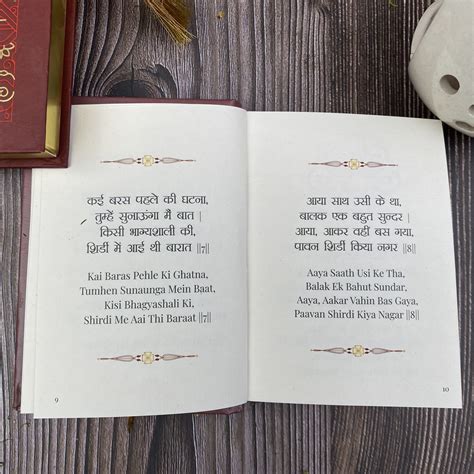 कई बरस पहले की घटना,
तुम्हें सुनाऊंगा मैं बात |
किसी भाग्यशाली की,
शिर्डी में आई थी बारात ||7||
Kai Baras Pehle Ki Ghatna,
Tumhen Sunaunga Mein Baat,
Kisi Bhagyashali Ki,
Shirdi Me Aai Thi Baraat ||7||
9
आया साथ उसी के था,
बालक एक बहुत सुन्दर |
आया, आकर वहीं बस गया,
पावन शिर्डी किया नगर ||8||
Aaya Saath Usi Ke Tha,
Balak Ek Bahut Sundar,
Aaya, Aakar Vahin Bas Gaya,
Paavan Shirdi Kiya Nagar ||8||
10